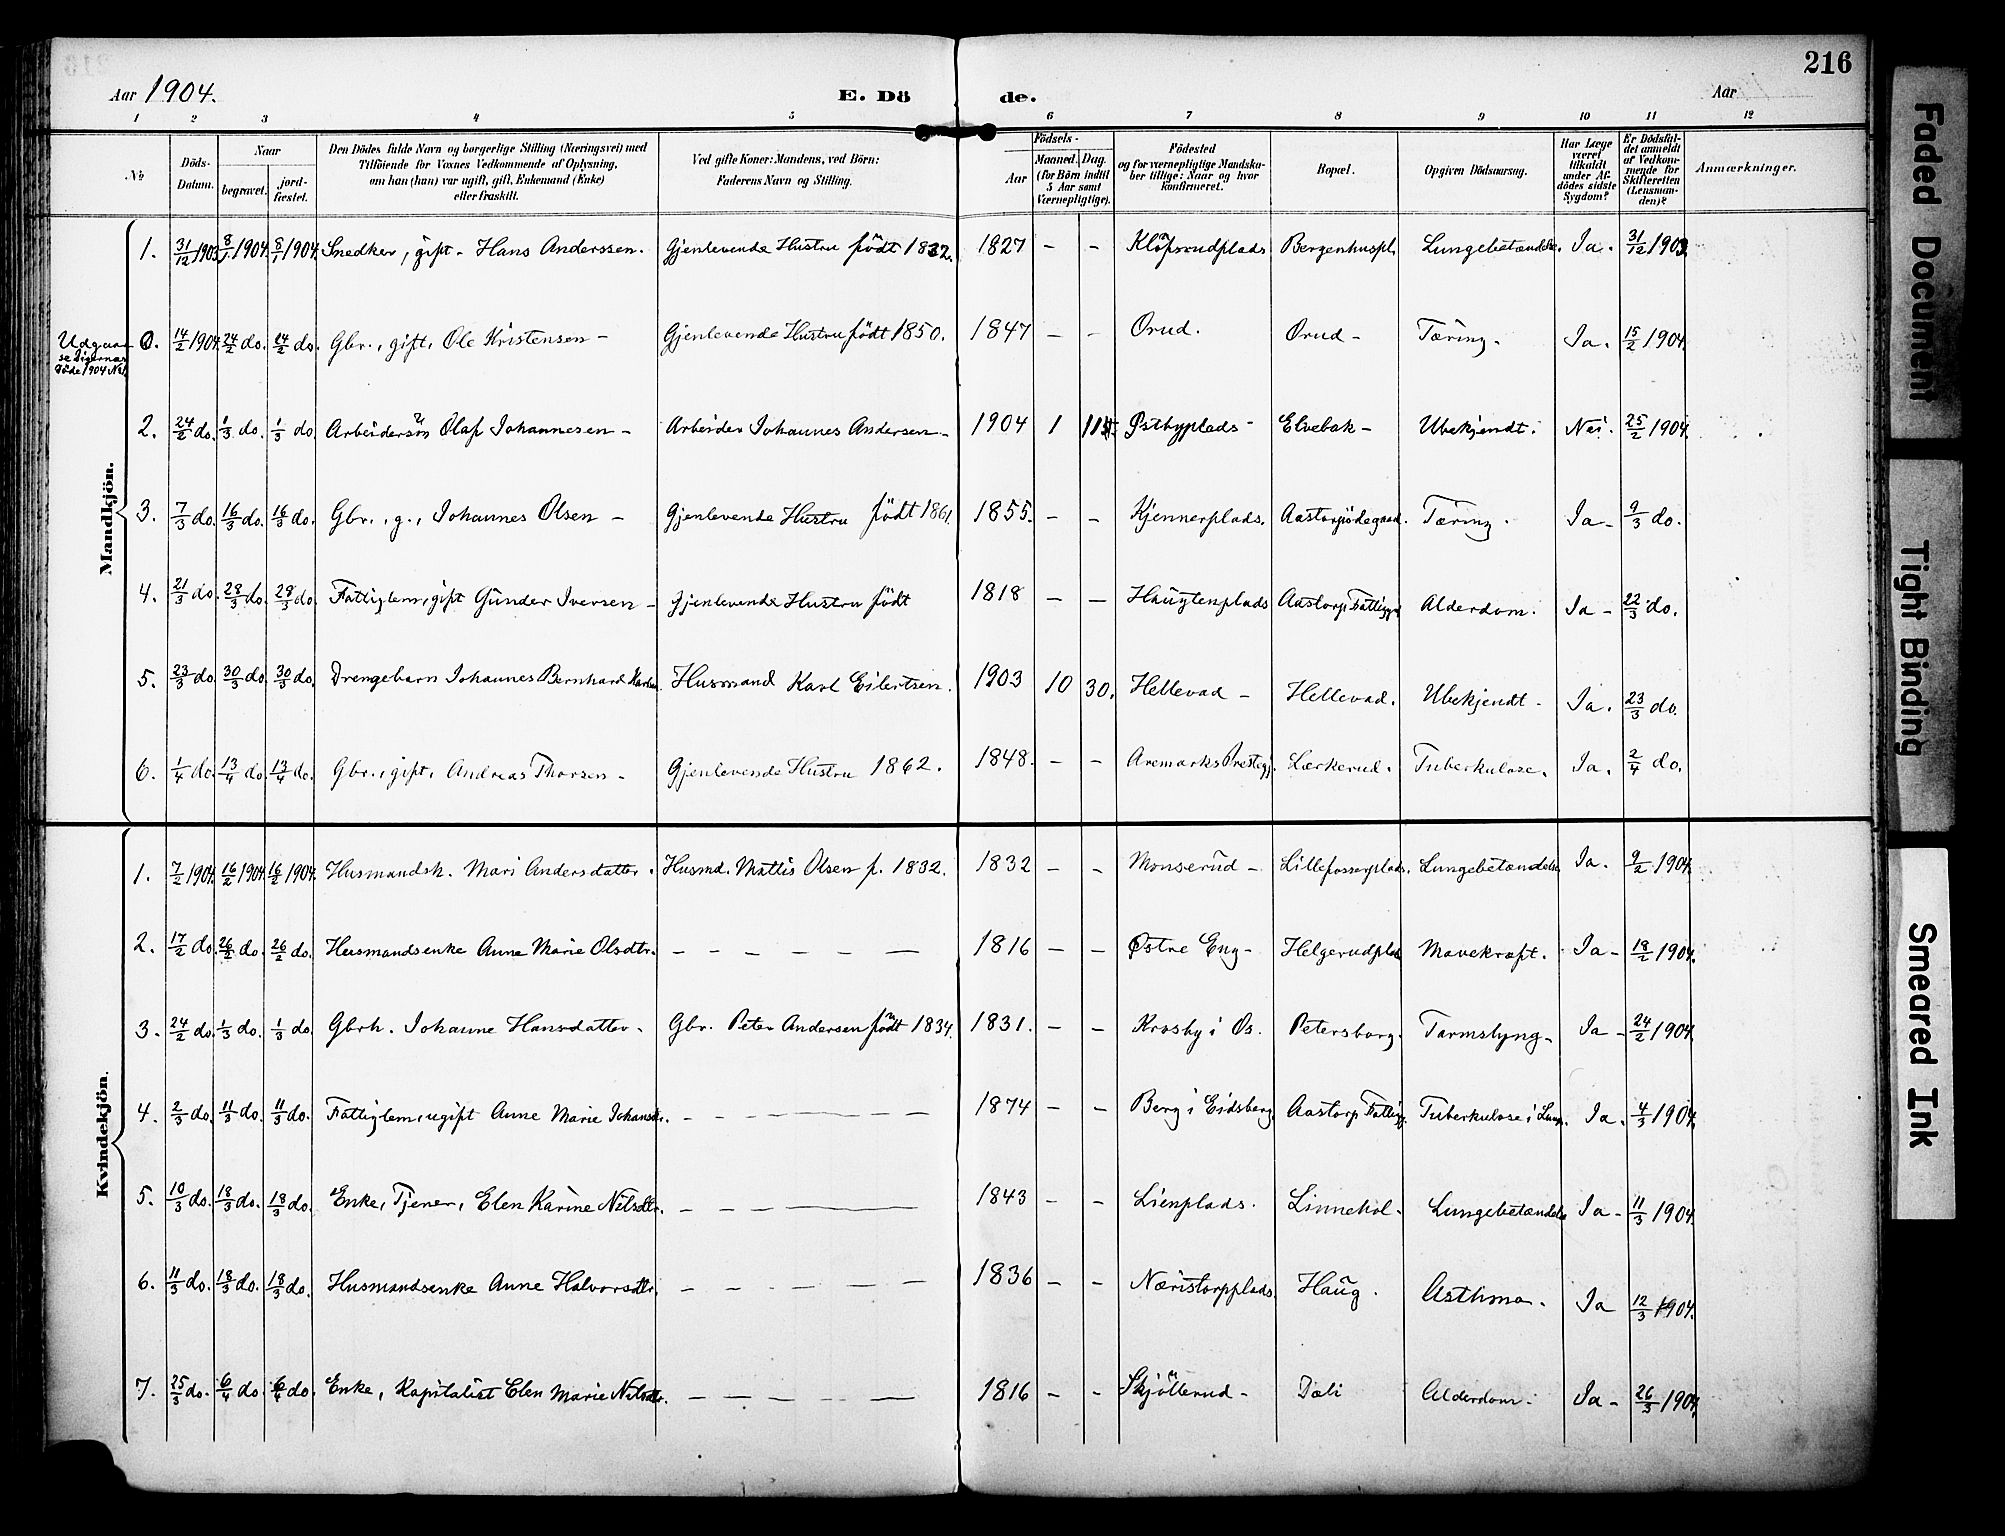 216
Aar 1904. E. Dö de. Aar
1 2 3 4 5 6 7 8 9 10 11 12
No
Döds-Datum.
Naar
begravet. jord-fæstet.
Den Dödes fulde Navn og borgerlige Stilling (Næringsvei) med
Tilföiende for Voxnes Vedkommende af Oplysning,
om han (hun) var ugift, gift, Enkemand (Enke)
eller fraskilt.
Ved gifte Koner: Mandens, ved Börn:
Faderens Navn og Stilling.
Födsels-
Aar
Maaned. Dag.
(for Börn indtil
5 Aar samt
Værnepligtige).
Födested
og for værnepligtige Mandska-
ber tillige: Naar og hvor
konfirmeret.
Bopæl.
Opgiven Dödsaarsag.
Har Læge
været
tilkaldt
under Af-
dödes sidste
Sygdom?
Er Dödsfal-
det anmeldt
af Vedkom-
mende for
Skifteretten
(Lensman-
den)?
Anmærkninger.
Mandkjön.
1. 31/12 1903 8/1 1904 8/1 1904. Snedker, gift - Hans Anderssen. Gjenlevende Hustru født 1832. 1827 - - Kløfsrudplads Bergenhuspl. Lungebetændelse. Ja. 31/12 1903.
Udgaar
0. 14/2 1904. 24/2 do. 24/2 do. Gbr., gift, Ole Kristensen - Gjenlevende Hustru født 1850. 1847 - - Orud. Orud - Tæring. Ja. 15/2 1904.
2. 24/2 do. 1/3 do. 1/3 do. Arbeidersøn Olaf Johannesen - Arbeider Johannes Andersen - 1904 1 Østbyplads - Elvebak - Ubekjendt. Nei. 25/2 1904.
3. 7/3 do. 16/3 do. 16/3 do. Gbr., g., Johannes Olsen - Gjenlevende Hustru født 1861. 1855. - - Kjennerplads. Aastorpødegaard. Tæring. Ja - 9/3 do.
4. 21/3 do. 28/3 do. 28/3 do. Fattiglem, gift Gunder Iversen - Gjenlevende Hustru født 1818 - - Haugtenplads Aastorp Fattigg. Alderdom. Ja - 22/3 do.
5. 23/3 do. 30/3 do. 30/3 do. Drengebarn Johannes Bernhard Karlsen. Husmand Karl Eilertsen. 1903 10 30. Hellevad - Hellevad. Ubekjendt - Ja. 23/3 do.
6. 1/4 do. 13/4 do. 13/4 do. Gbr., gift, Andreas Thorsen - Gjenlevende Hustru 1862. 1848. - - Aremarks Prestegj. Lærkerud. Tuberkulose. Ja. 2/4 do.
Kvindekjön.
1. 7/2 1904. 16/2 1904 16/2 1904. Husmandsk. Mari Andersdatter. Husmd. Mattis Olsen f. 1832. 1832 - - Monserud - Lillefosserplads. Lungebetændelse Ja. 9/2 1904.
2. 17/2 do. 26/2 do. 26/2 do. Husmandsenke Anne Marie Olsdtr. - - - - - - 1816 - - Østre Eng - Helgerudplads Mavekræft. Ja - 18/2 1904.
3. 24/2 do. 1/3 do. 1/3 do. Gbrh. Johanne Hansdatter - Gbr. Peter Andersen født 1834. 1831. - - Krosby i Os. Petersborg. Tarmslyng - Ja - 24/2 1904.
4. 2/3 do. 11/3 do. 11/3 do. Fattiglem, ugift Anne Marie Johansdtr. - - - - - - 1874 - - Berg i Eidsberg Aastorp Fattigg. Tuberkulose i Lung. Ja. 4/3 1904.
5. 10/3 do. 18/3 do. 18/3 do. Enke, Tjener, Elen Karine Nilsdtr. - - - - - 1843 - - Lienplads. Linnekol - Lungebetændelse Ja - 11/3 1904.
6. 11/3 do. 18/3 do. 18/3 do. Husmandsenke Anne Halvorsdtr. - - - - - - 1836 - - Næristorpplads. Haug. Asthma. Ja 12/3 1904.
7. 25/3 do. 6/4 do. 6/4 do. Enke, Kapitalist Elen Marie Nilsdtr. - - - - - 1816 - - Skjøllerud - Dæli Alderdom. Ja - 26/3 1904.
Faded Document
Tight Binding
Smeared Ink